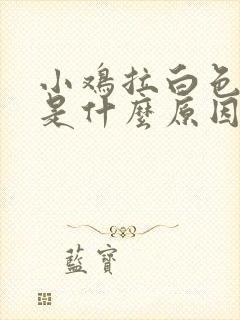 小鸡拉白色
是什麼原因
藍寶